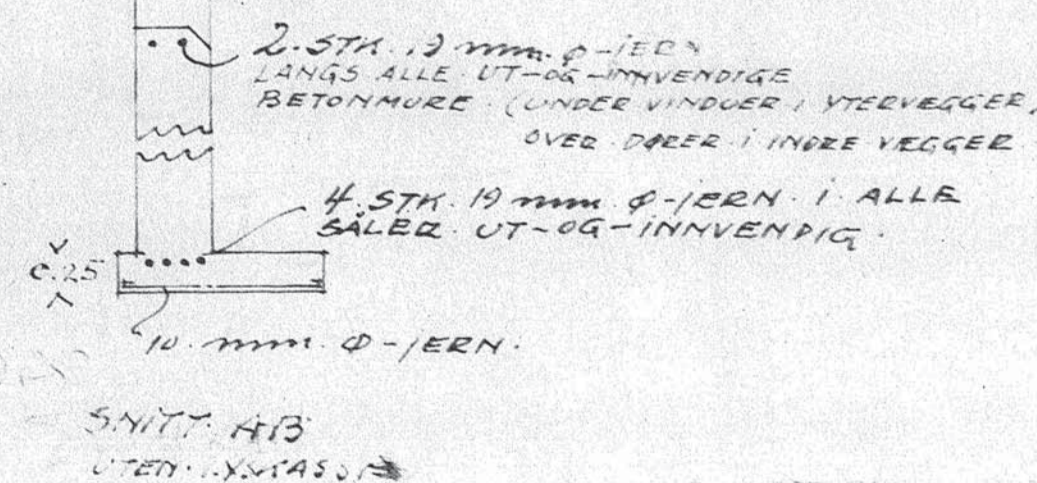 2. STK. 19 mm. Ø-JERN
LANGS ALLE UT-OG-INNVENDIGE
BETONMURE. (UNDER VINDUER I YTERVEGGER,
OVER DØRER I INDRE VEGGER
4. STK. 19 mm. Ø-JERN. I. ALLE
SÅLER. UT-OG-INNVENDIG.
0.25
10. mm. Ø-JERN.
SNITT. AB
UTEN.